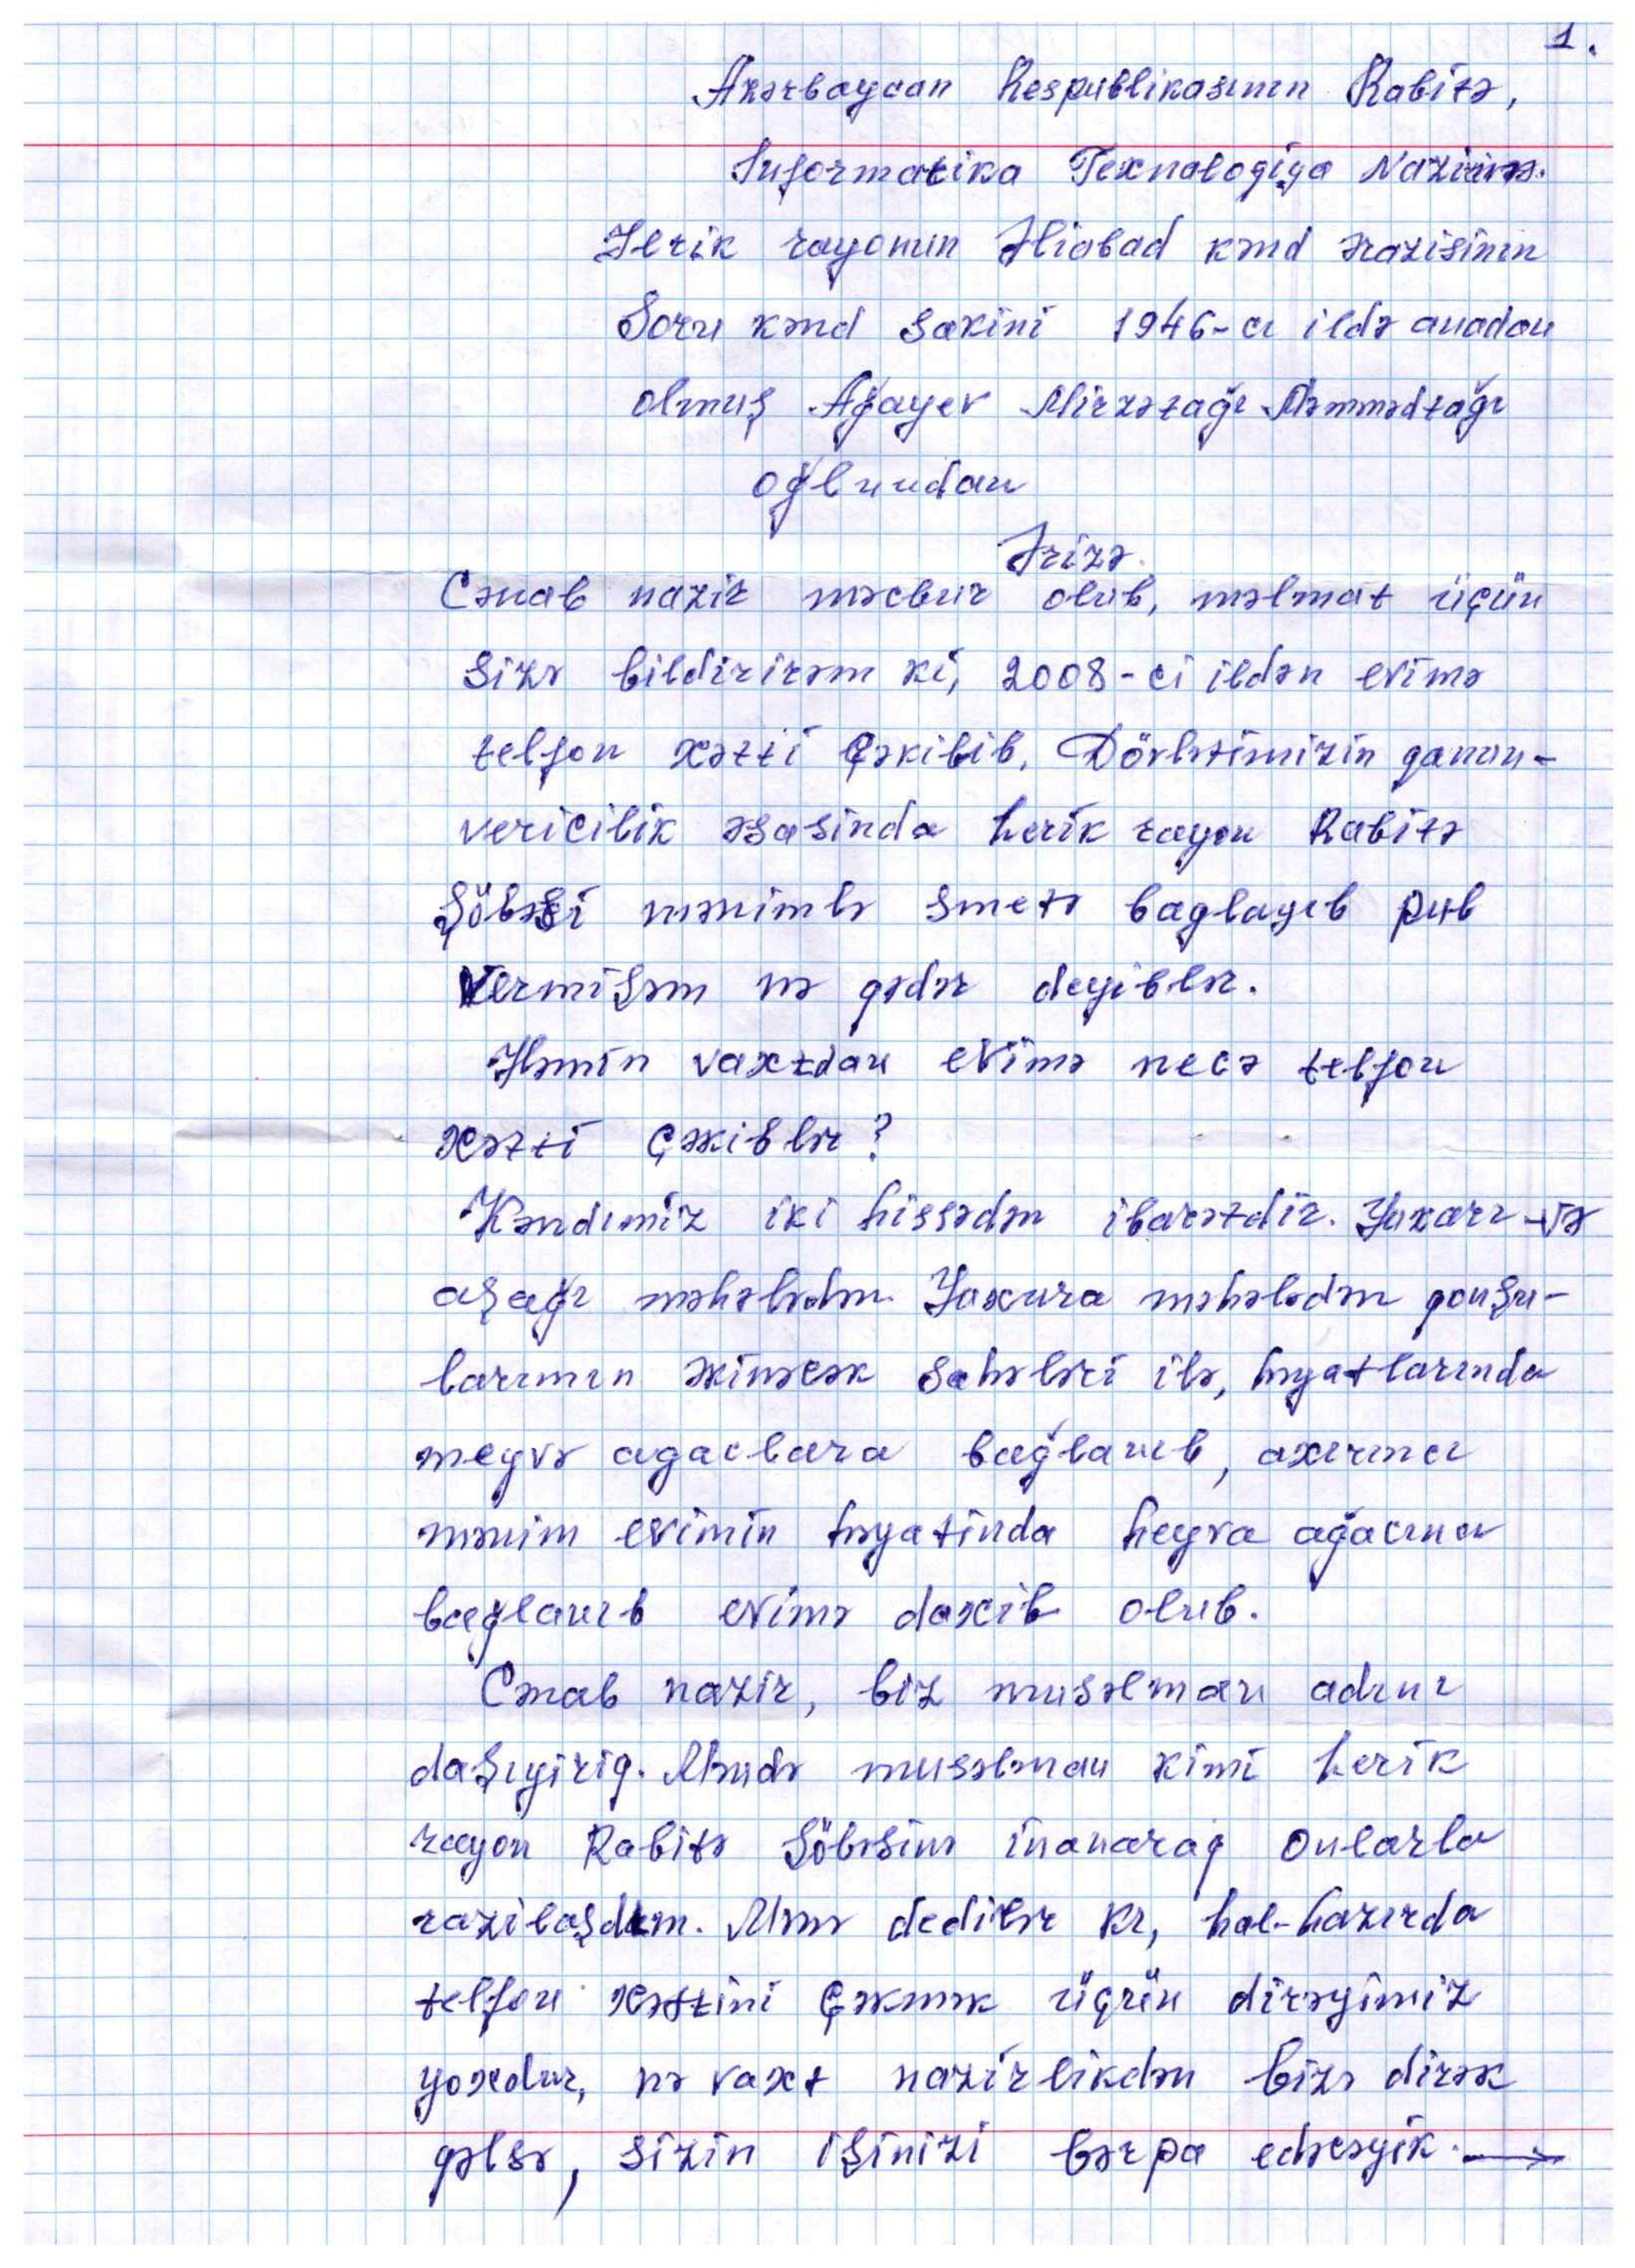 1.
Azərbaycan Respublikasının Rabitə,
İnformatika Texnalogiya Nazirinə.
Lerik rayonun Əliabad kənd ərazisinin
Soru kənd sakini 1946-cı ildə anadan
olmuş Ağayev Mirzətağı Məmmədtağı
oğlundan
Ərizə.
Cənab nazir məcbur olub, məlmat üçün
Sizə bildirirəm ki, 2008-ci ildən evimə
telfon xətti çəkilib, Dövlətimizin qanun-
vericilik əsasində Lerik rayon Rabitə
Şöbəsi mənimlə smetə baglayıb pul
vermişəm nə qədər deyiblər.
Həmin vaxtdan evimə necə telfon
xətti çəkiblər?
Kəndimiz iki hissədən ibarətdir. Yuxarı və
aşağı məhələdən. Yuxura məhələdən qonşu-
larımın əkinəcək sahələri ilə, həyatlarında
meyvə agaclara bağlanıb, axırıncı
mənim evimin həyatində heyva ağacına
bağlanıb evimə daxil olub.
Cənab nazir, biz musəlman adını
daşıyirig. Məndə musəlman kimi Lerik
rayon Rabitə Şöbəsinə inanarag onlarla
razilaşdım. Mənə dedilər ki, hal-hazırda
telfon xəttini çəkmək üçün dirəyimiz
yoxdur, nə vaxt nazirlikdən bizə dirək
gəlsə, sizin işinizi bərpa edəcəyik. →